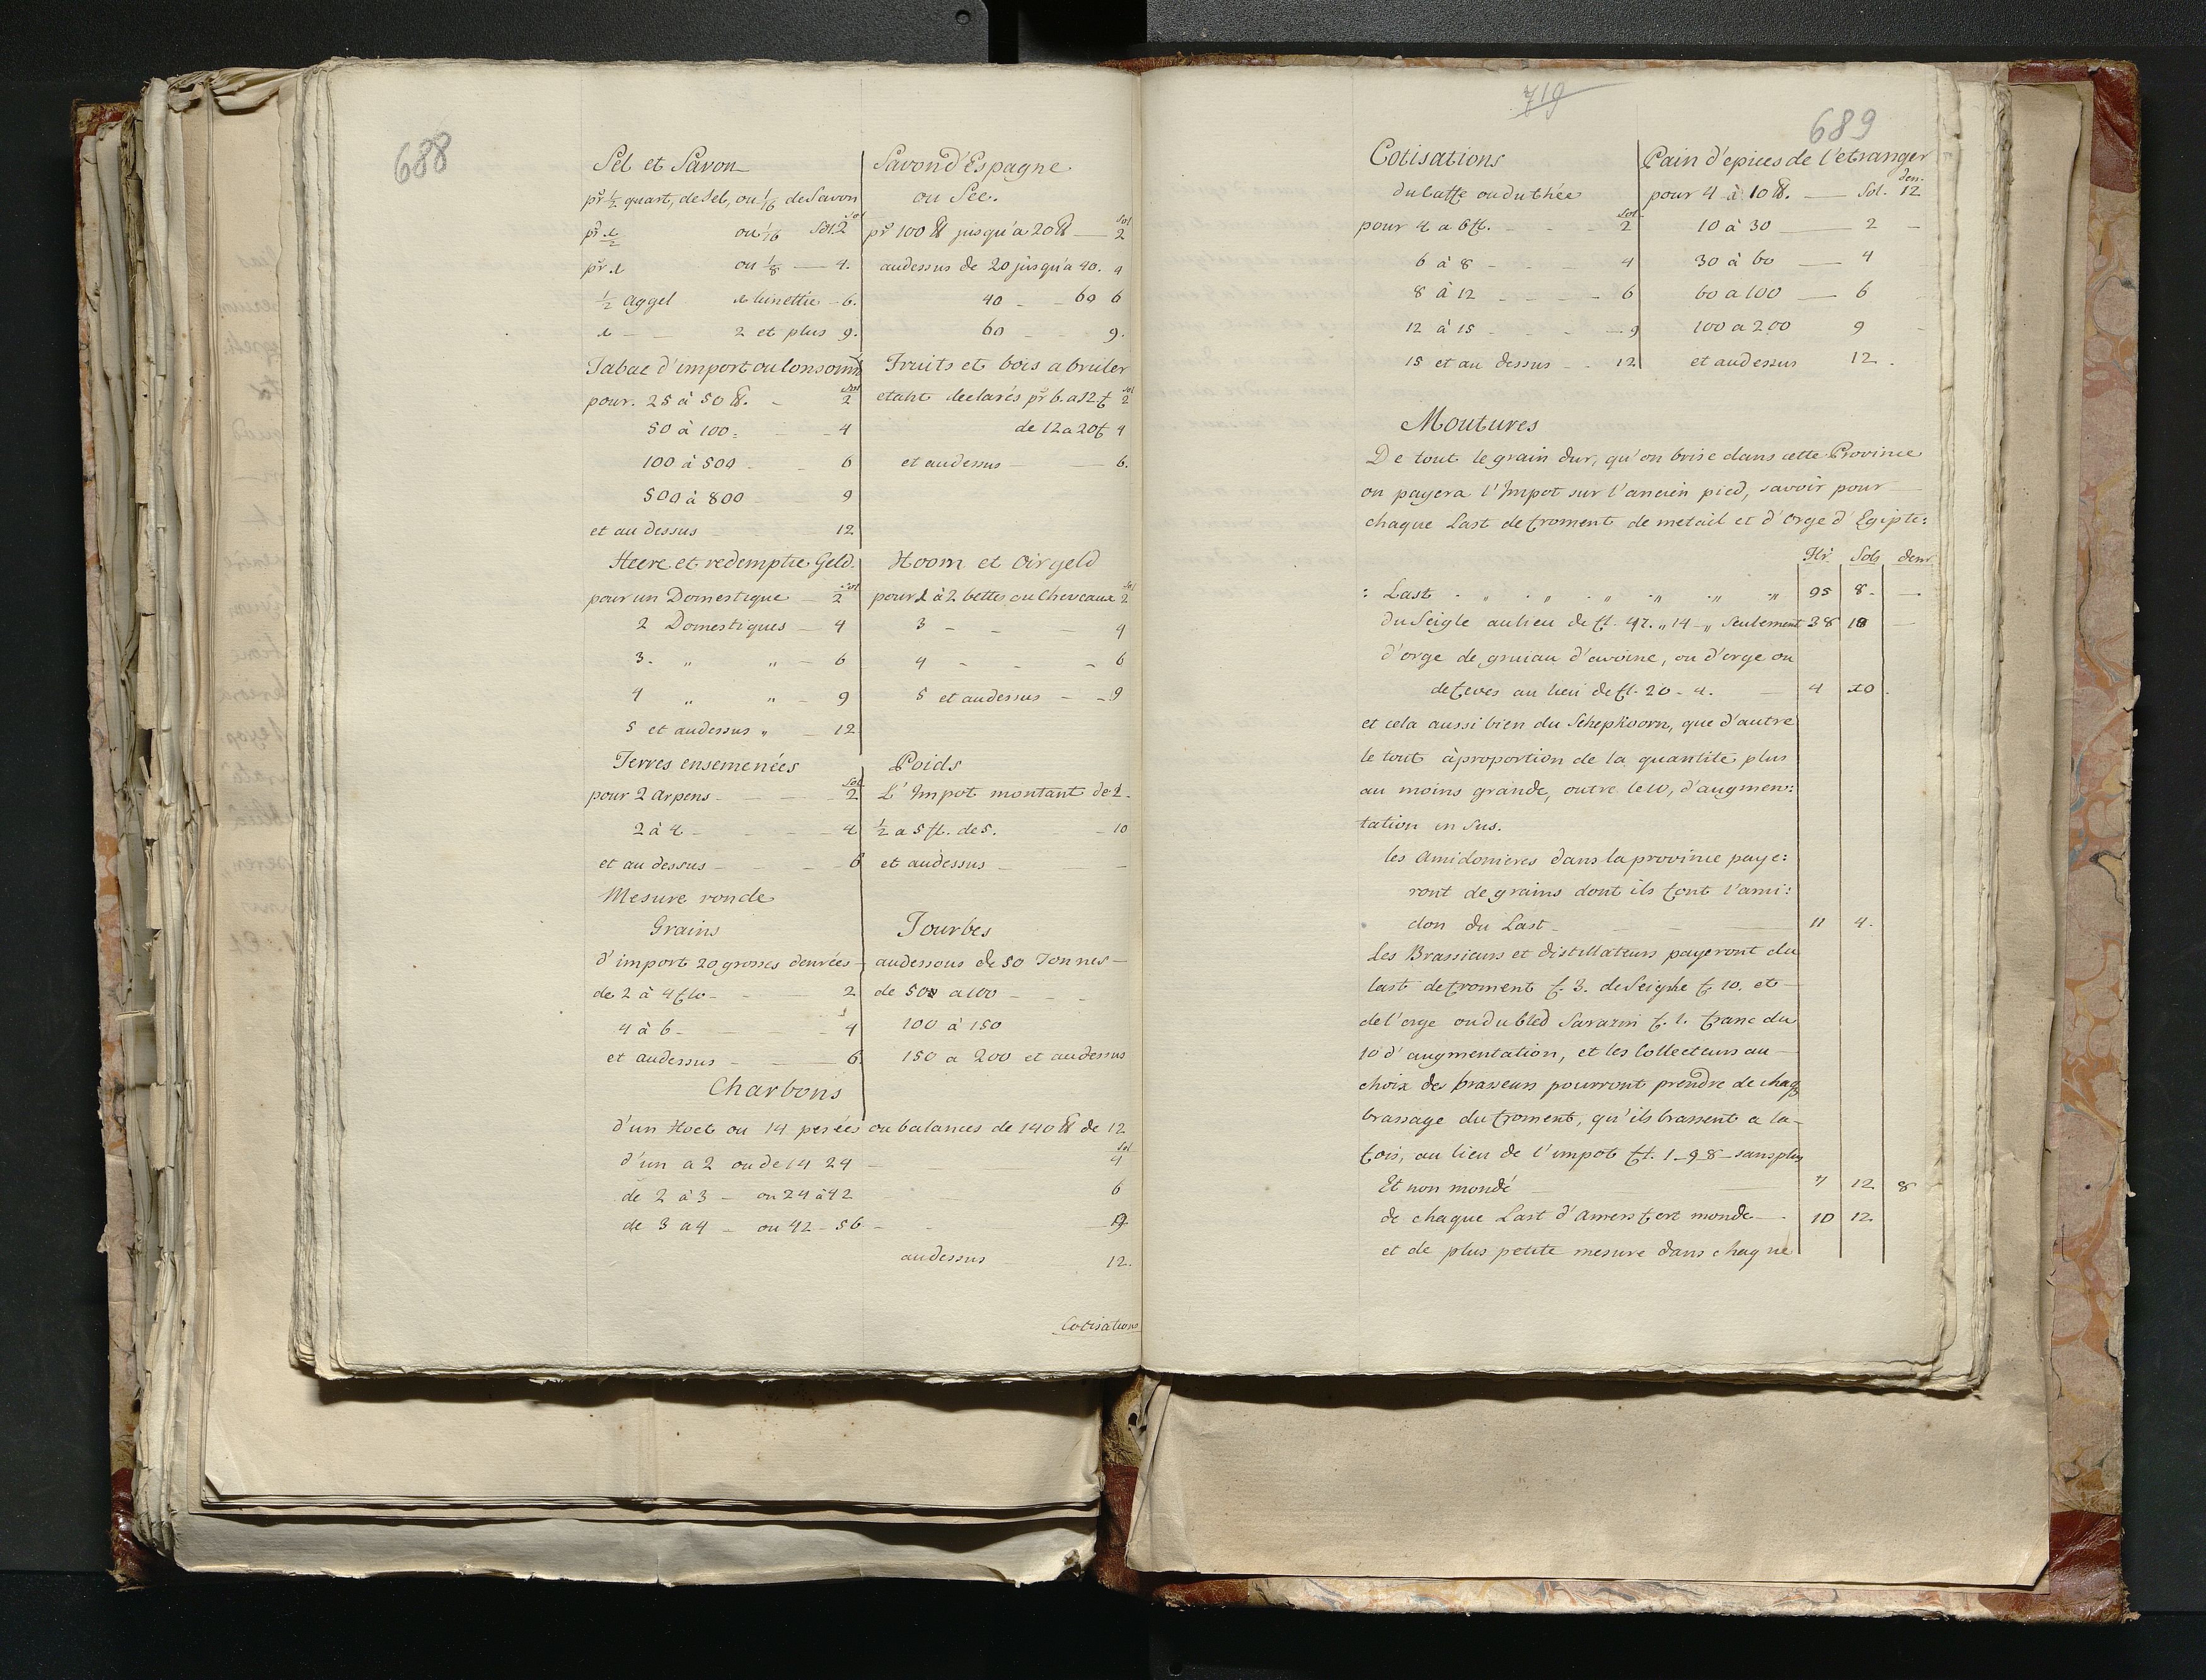 688
Sel et Savon
pr ½ quart, de Sel, ou 1/16 de Savon
Sol
pr ½ ou 1/16 Sol. 2
pr. 1 ou 1/8 — 4.
½ aggel 1 kinettie - 6.
1 — — 2 et plus 9.
Tabac d'import ou consomt
Sol
pour. 25 à 50 ℔. - 2
50 à 100 - - 4
100 à 500 - - 6
500 à 800 - 9
et au dessus 12
Heere et redemptie Geld.
Sol
pour un Domestique — 2
2 Domestiques — 4
3. „ „ — 6
4 „ „ — 9
5 et audessus „ — 12
Terres ensemencées
Sol
pour 2 Arpens — — — 2
2 à 4 - - - 4
et au dessus — - - 6
Mesure ronde
Grains
d'import 20 grosses denrées
de 2 à 4 flo- - — 2
4 à 6 - — — 4
et audessus — — 6.
Savon d'Espagne
ou Sec.
Sol
pr 100 ℔ jusqu'a 20 ℔ — 2
audessus de 20 jusqu'a 40. 4
40 - - 60 6
60 - - 9.
Fruits et bois a bruler
Sol
etant declarés pr 6. a 12 f 2
de 12 a 20 f 4
et audessus — — 6.
Hoorn et Oirgeld
Sol
pour 1 à 2 bettes ou Chevaux 2
3 - - — 4
4 - - - 6
5 et audessus — - 9
Poids
L'Impot montant de 2.
½ a 5 fl. de 5. - 10
et audessus — —
Tourbes
audessous de 50 Tonnes —
de 50 a 100 — - -
100 à 150
150 a 200 et audessus
Charbons
d'un Hoet ou 14 pesées ou balances de 140 ℔ de 12
Sol
d'un a 2 ou de 14 24 — 4
de 2 à 3 — ou 24 à 42 6
de 3 a 4 — ou 42 - 56 - - 9
audessus — 12.
Cotisations
719
689
Cotisations
du Caffe ou du thée
Sol
pour 4 a 6 fl. - - - 2
6 à 8 - - - 4
8 à 12 - - - - 6
12 à 15 - - - - 9
15 et au dessus - - 12
Pain d'epices de l'etranger
den.
pour 4 à 10 ℔. — Sol. 12
10 à 30 — 2 -
30 à 60 — 4
60 a 100 — 6
100 a 200 9 -
et audessus 12.
Moutures
De tout le grain dur, qu'on brise dans cette Province
on payera l'Impot sur l'ancien pied, savoir pour
chaque Last de froment de metail et d'Orge d'Egipte:
Flr. Sols denr.
: Last . „ . „ . „ . „ . „ „ 95 8. —.
du Seigle au lieu de fl. 47. „ 14 - „ Seulement 38 10 —
d'orge de gruiau d'avoine, ou d'orge ou
de feves au lieu de fl. 20 - 4. — 4 10 .
et cela aussi bien du Schepkoorn, que d'autre
le tout à proportion de la quantite plus
au moins grande, outre le 10, d'augmen:
tation en Sus.
les Amidonieres dans la province paye:
ront de grains dont ils font l'ami:
don du Last — — — 11 4.
Les Brassieurs et distillateurs payeront du
last de froment f. 3. de Seigle f. 10. et —
de l'orge ou du bled Sarazin f. 1. franc du
10 d'augmentation, et les Collecteurs au —
choix des brasseurs pourront prendre de chaq
brassage du froment, qu'ils brassent a la-
fois, au lieu de l'impot fl. 1 - 9 8 - sans plus
Et non mondé — — 7 12 8
de chaque Last d'Amersfort monde — . 10 12.
et de plus petite mesure dans chaque